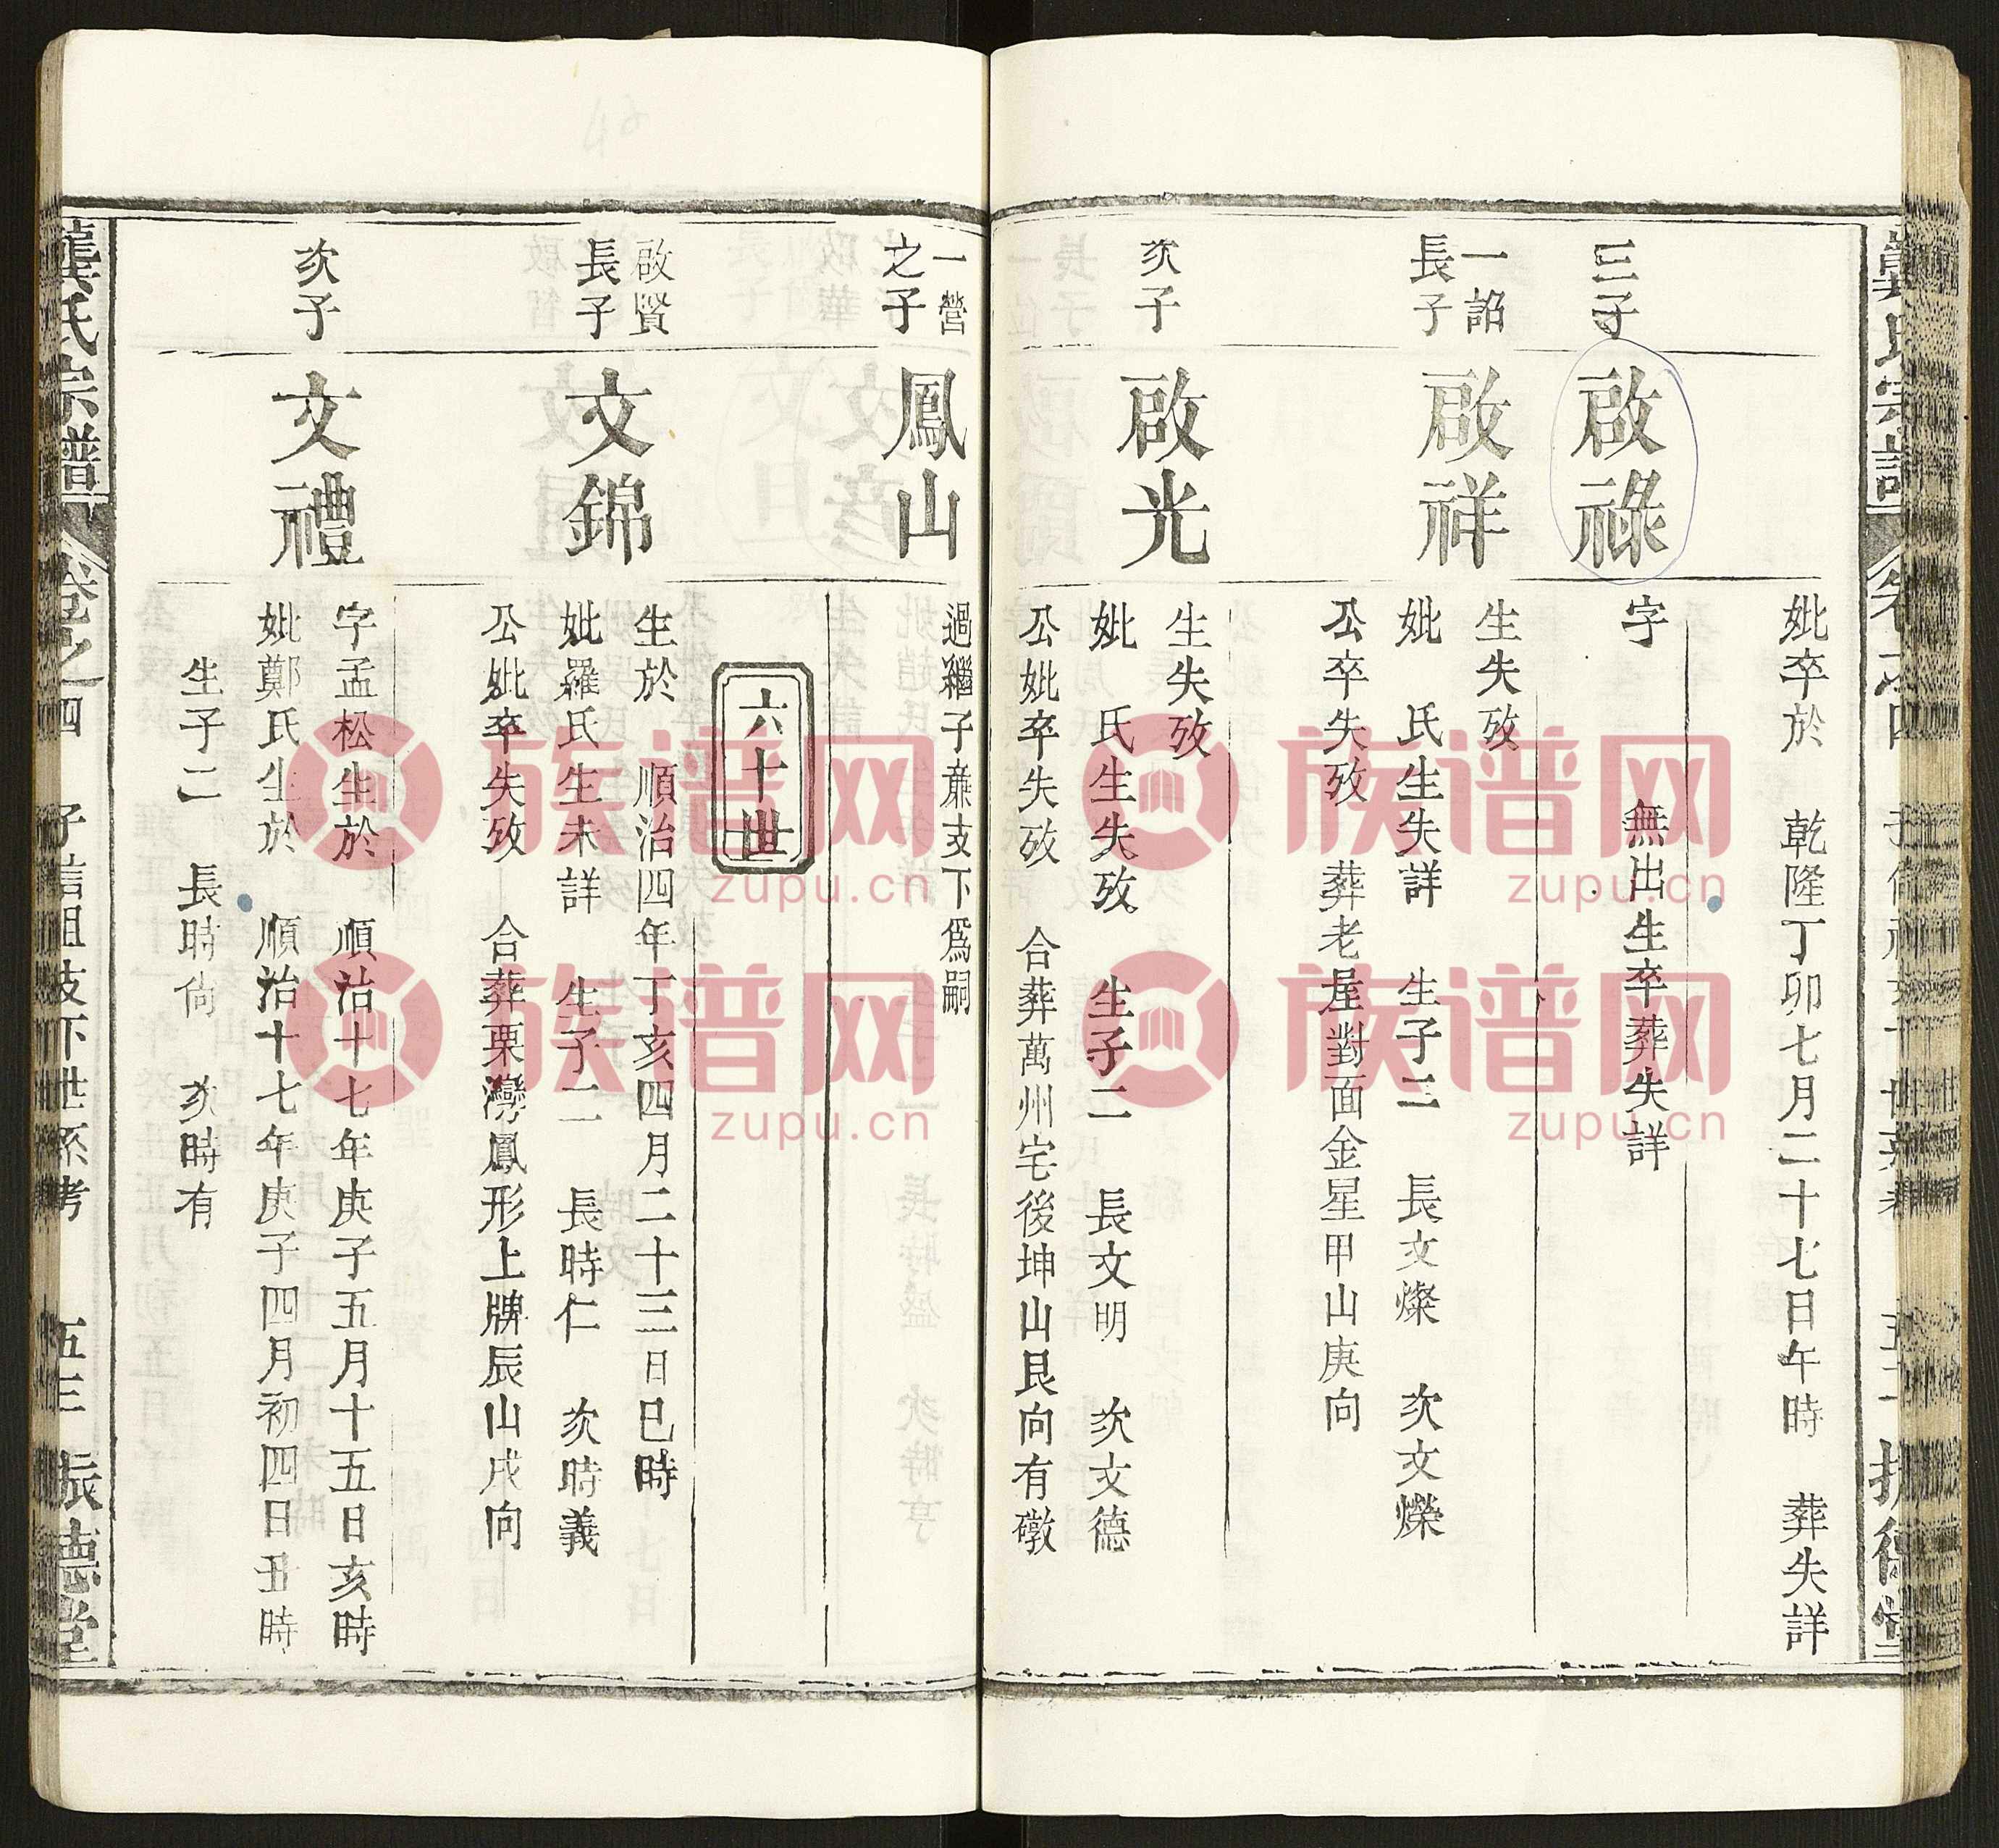 妣卒於 乾隆丁卯七月二十七日午時 葬失詳
三子
啟祿
字 無出生卒葬失詳
一詔
長子
啟祥
生失攷
妣 氏生失詳 生子二 長文燦 次文爍
公卒失攷 葬老屋對面金星甲山庚向
次子
啟光
生失攷
妣 氏生失攷 生子二 長文明 次文德
公妣卒失攷 合葬萬州宅後坤山艮向有礅
一營
之子
鳳山
過繼子亷支下爲嗣
六十世
啟賢
長子
文錦
生於 順治四年丁亥四月二十三日巳時
妣羅氏生未詳 生子二 長時仁 次時義
公妣卒失攷 合葬栗灣鳳形上牌辰山戌向
次子
文禮
字孟松生於 順治十七年庚子五月十五日亥時
妣鄭氏生於 順治十七年庚子四月初四日丑時
生子二 長時倘 次時有
龔氏宗譜 卷之四 子信祖支下世系考 五三 振德堂
族谱网
zupu.cn
族谱网
zupu.cn
族谱网
zupu.cn
族谱网
zupu.cn